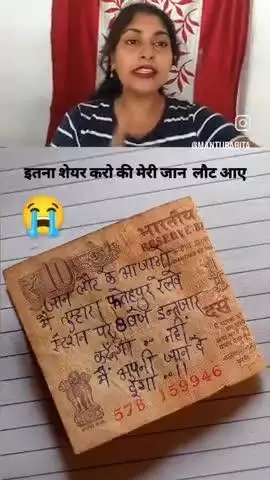 @MANTURABITA
इतना शेयर करो की मेरी जान लौट आए
10
भारतीय
RESERVE B
जान और के आजाना
मैं तुम्हारा फतेहपुर रेलवे
स्टेशन पर 8 बजे इन्तजार
करूँगा .. नहीं
मैं अपनी जान दे
दूंगा ..!!
दस
57B 159946